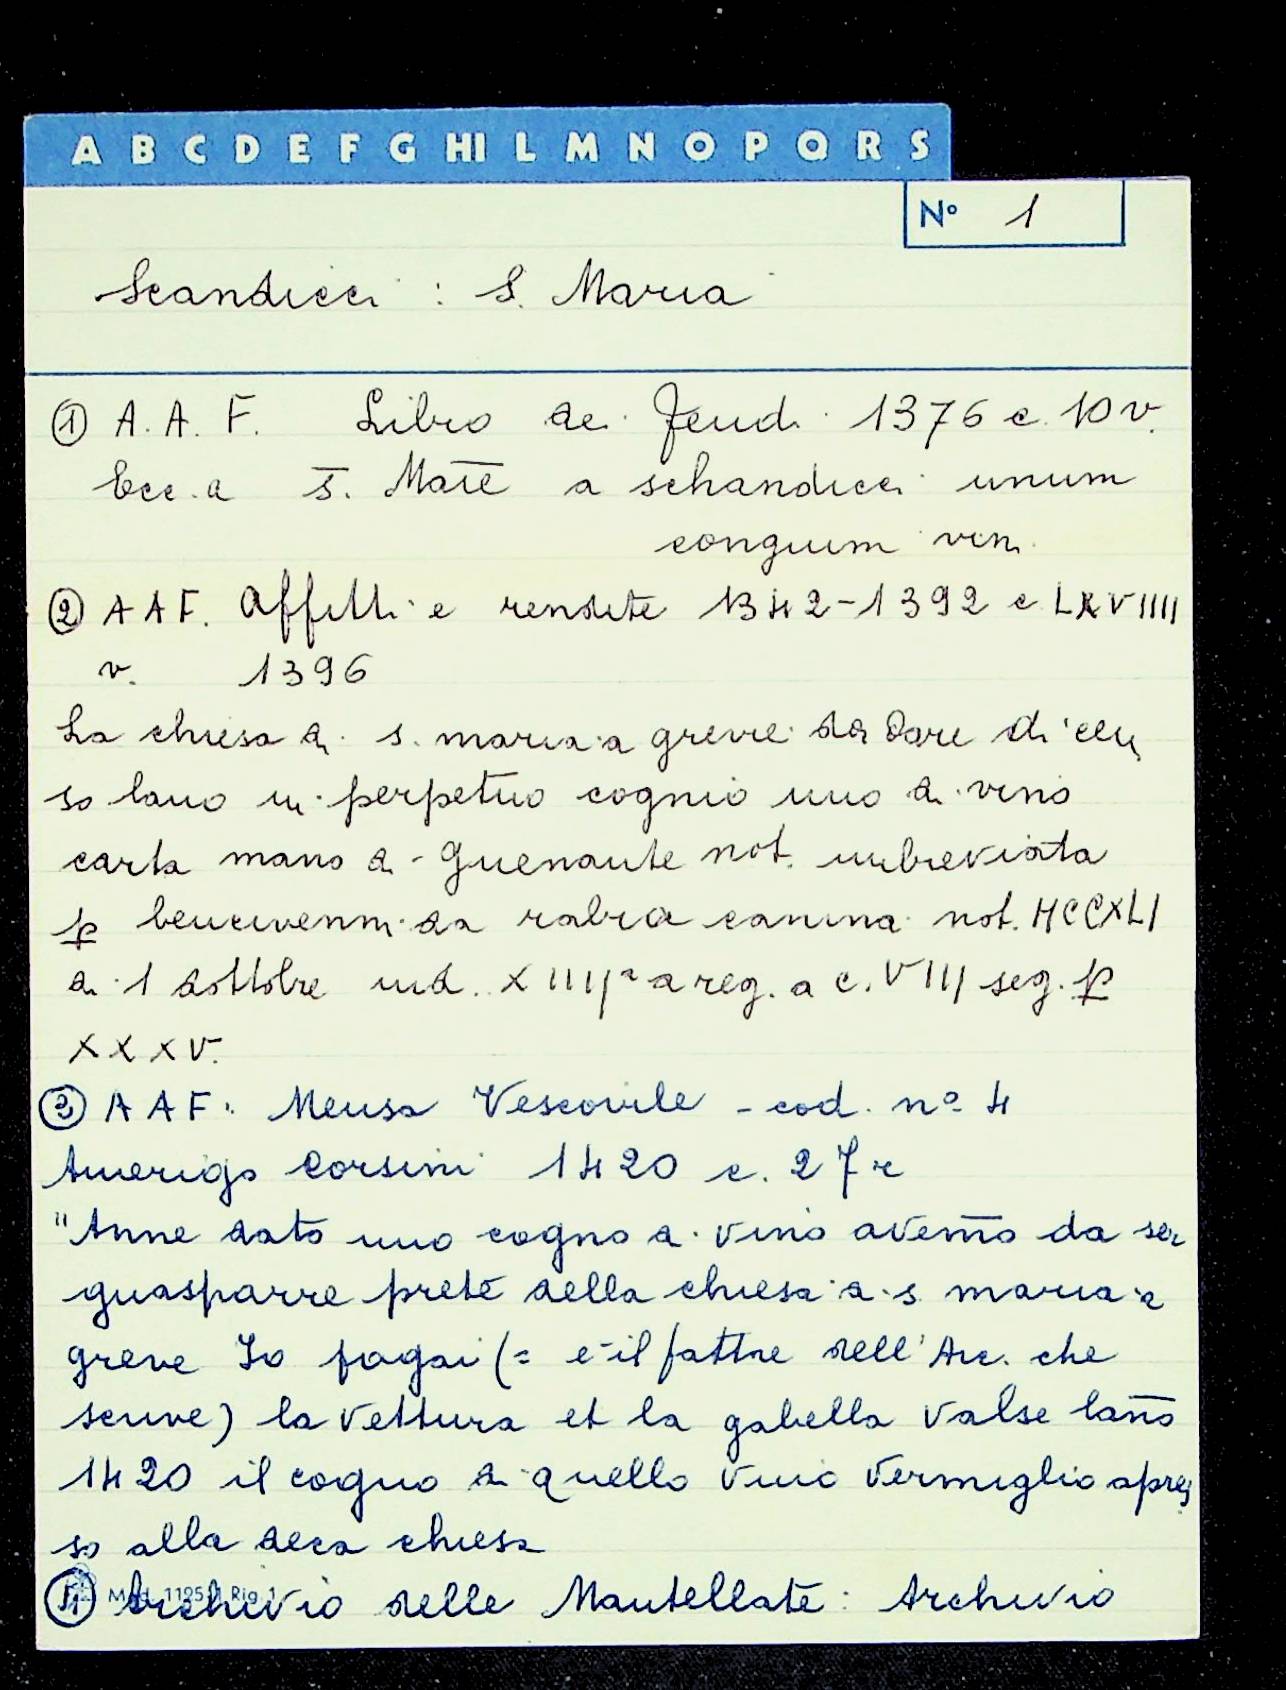 A B C D E F G HI L M N O P Q R S
N° 1
Scandicci : S. Maria
① A. A. F. Libro dei Feudi 1376 c. 10 v.
Ecc.a S̅. Mar̅i̅e̅ a schandicci unum
congium vini
② A A F. Affitti e rendite 1342-1392 c LXVIIII
v. 1396
La chiesa di s. maria a greve de dare di cen
so lano in perpetuo cognio uno di vino
carta mano di Guenante not. imbreviata
p̱ bencivenni da rabia canina not. MCCXLI
di 1 dottobre ind. XIIIIª a reg. a c. VIII seg. p̱
XXXV.
③ A A F. Mensa Vescovile - cod. nº 4
Amerigo Corsini 1420 c. 27 r
"Anne dato uno cogno di vino avem̅o da ser
guasparre prete della chiesa di s. maria a
greve Io pagai (= e il fattore dell'Arc. che
scrive) la vettura et la gabella valse lan̅o
1420 il cogno di quello vino vermiglio apres
so alla deca chiesa
④ Archivio delle Mantellate : Archivio
Mod. 1125/1 Rig. 1